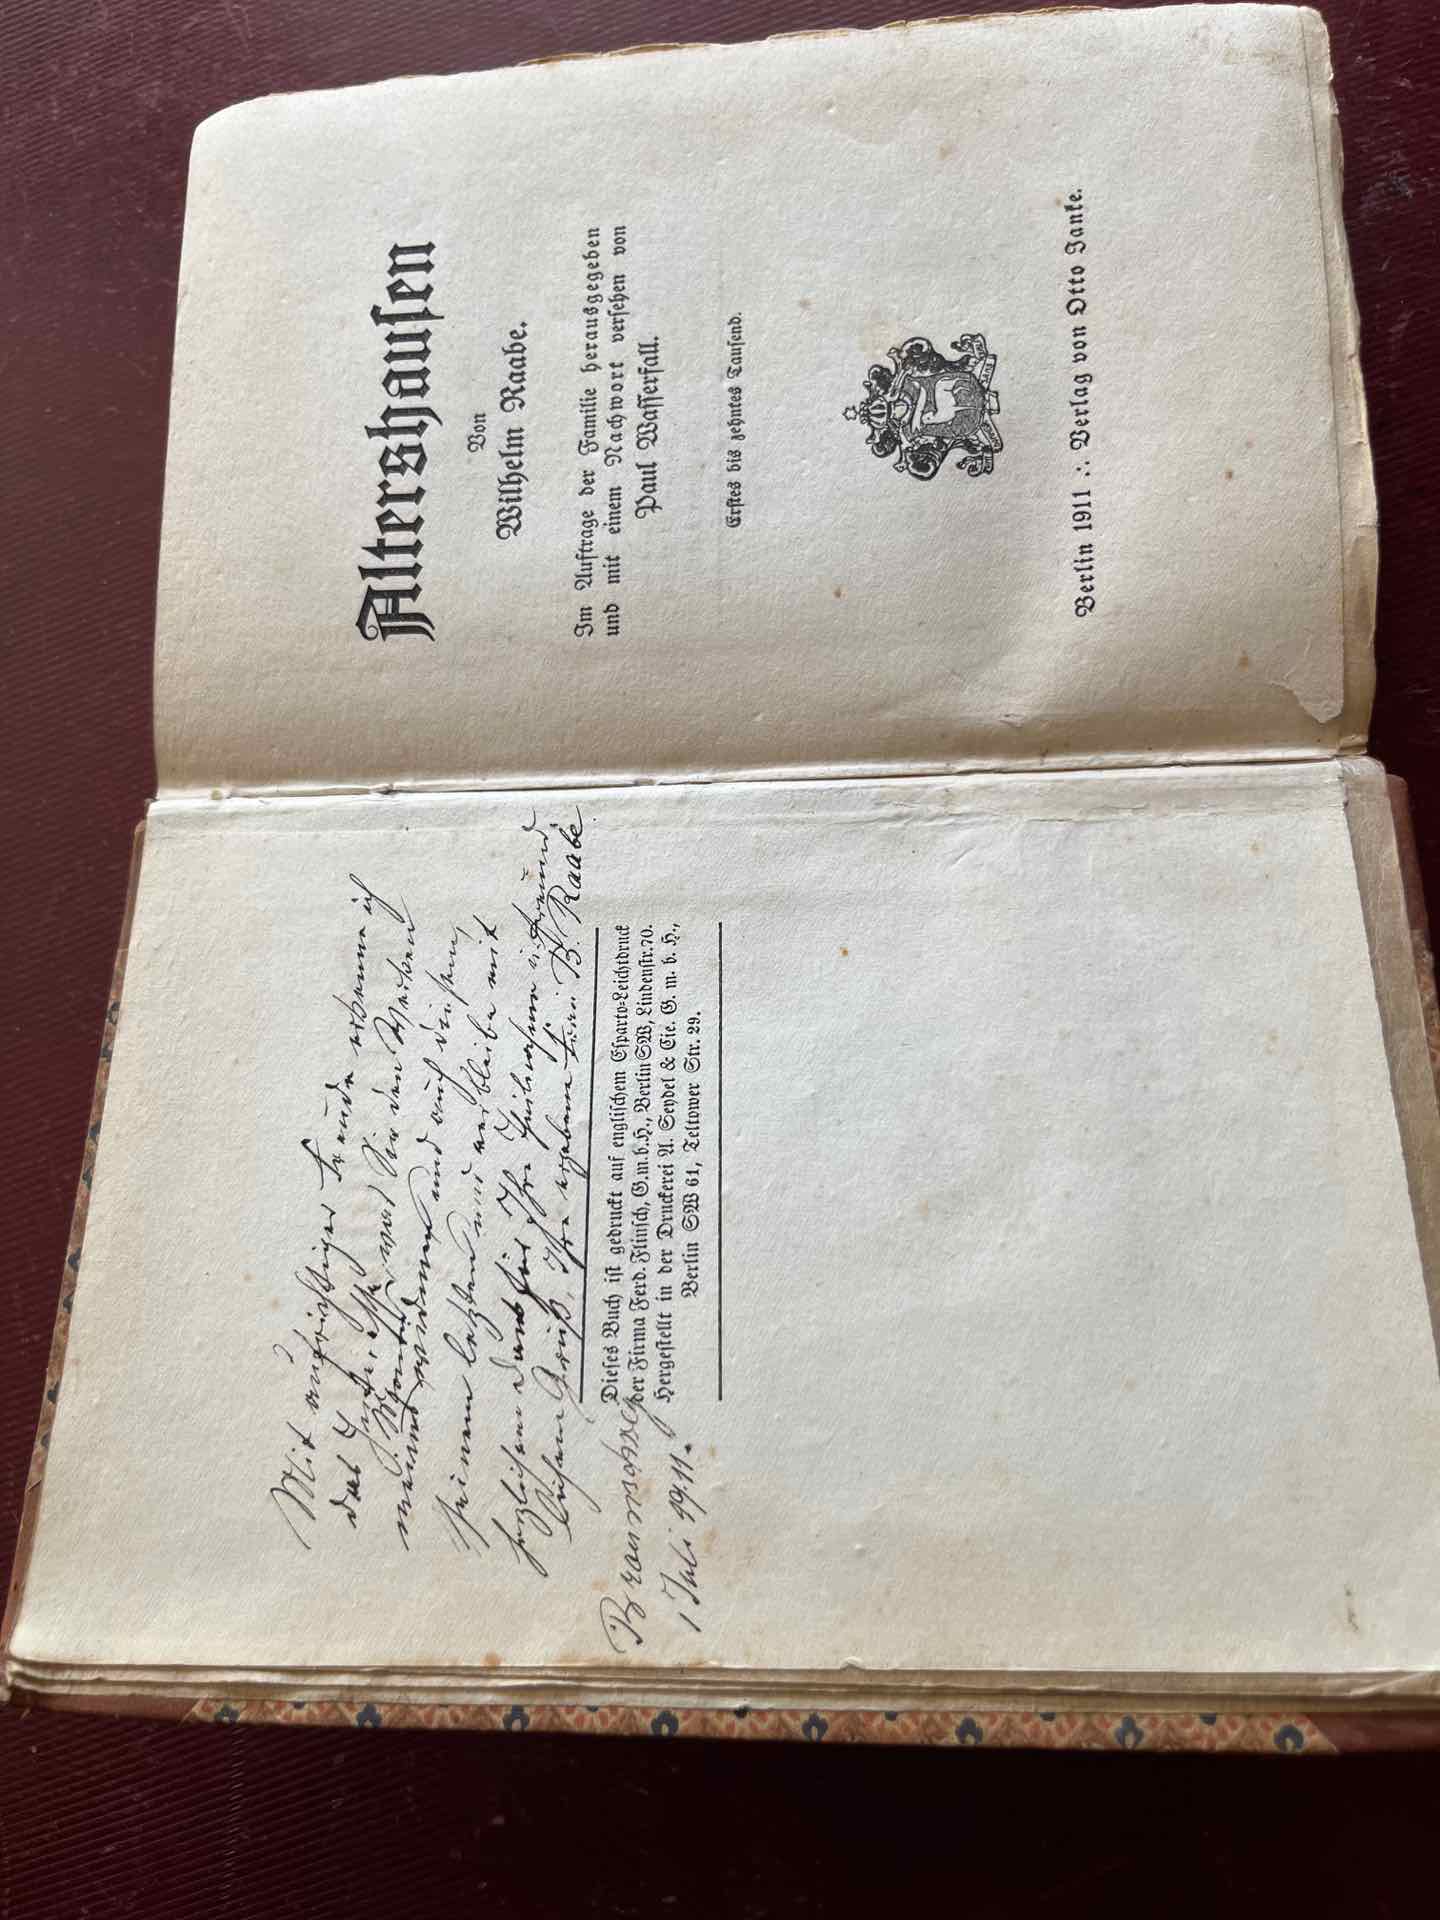 Mit aufrichtiger Freude erkenne ich
das Intereße
was Sie den Werken
meines Mannes
widmen und auch diesem,
seinem letzten und verbleibe mit
herzlichem Dank für Ihre Theilnahme u. freund
lichem Gruß, Ihre ergebene Frau B. Raabe.
Braunschwg
1 Juli 1911.
Dieses Buch ist gedruckt auf englischem Esparto-Leichtdruck
der Firma Ferd. Flinsch, G.m.b.H., Berlin SW, Lindenstr. 70.
Hergestellt in der Druckerei A. Seydel & Cie. G. m. b. H.,
Berlin SW 61, Teltower Str. 29.
Altershausen
Von
Wilhelm Raabe.
Im Auftrage der Familie herausgegeben
und mit einem Nachwort versehen von
Paul Wasserfall.
Erstes bis zehntes Tausend.
Berlin 1911 ∴ Verlag von Otto Janke.